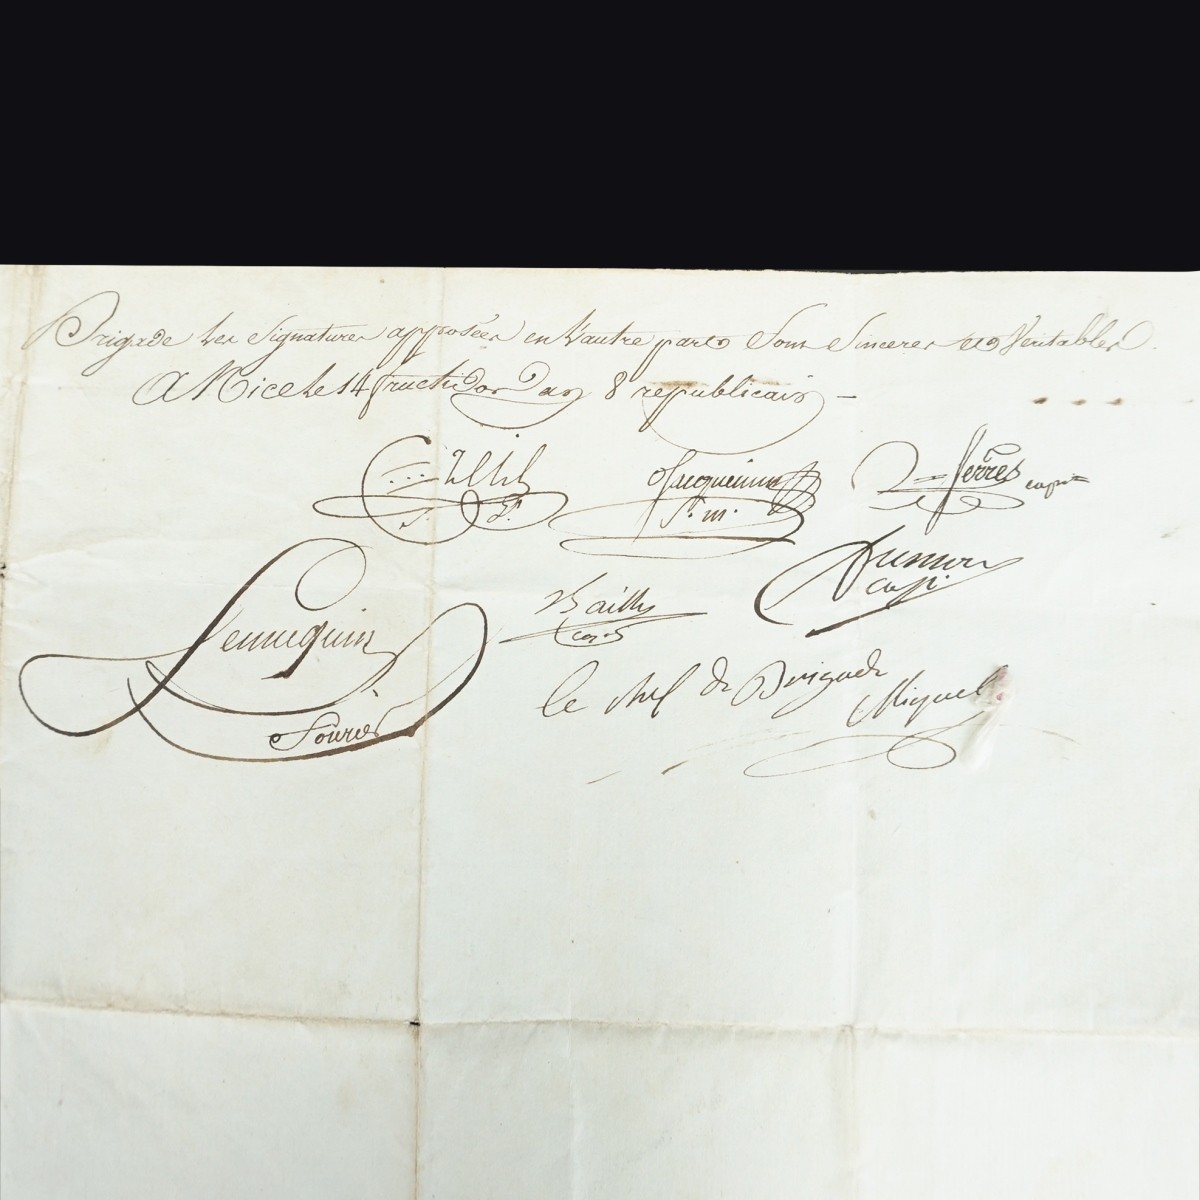 Brigade les Signatures apposées en l'autre part Sont Sinceres et Veritables.
A Nice le 14 fructidor an 8 republicain –
Petit Jacqueminn ferrés capne
S. L. S. m.
Dumon
cap.
Bailly
Lennequin
Fourier
le chef de Brigade
Miquel